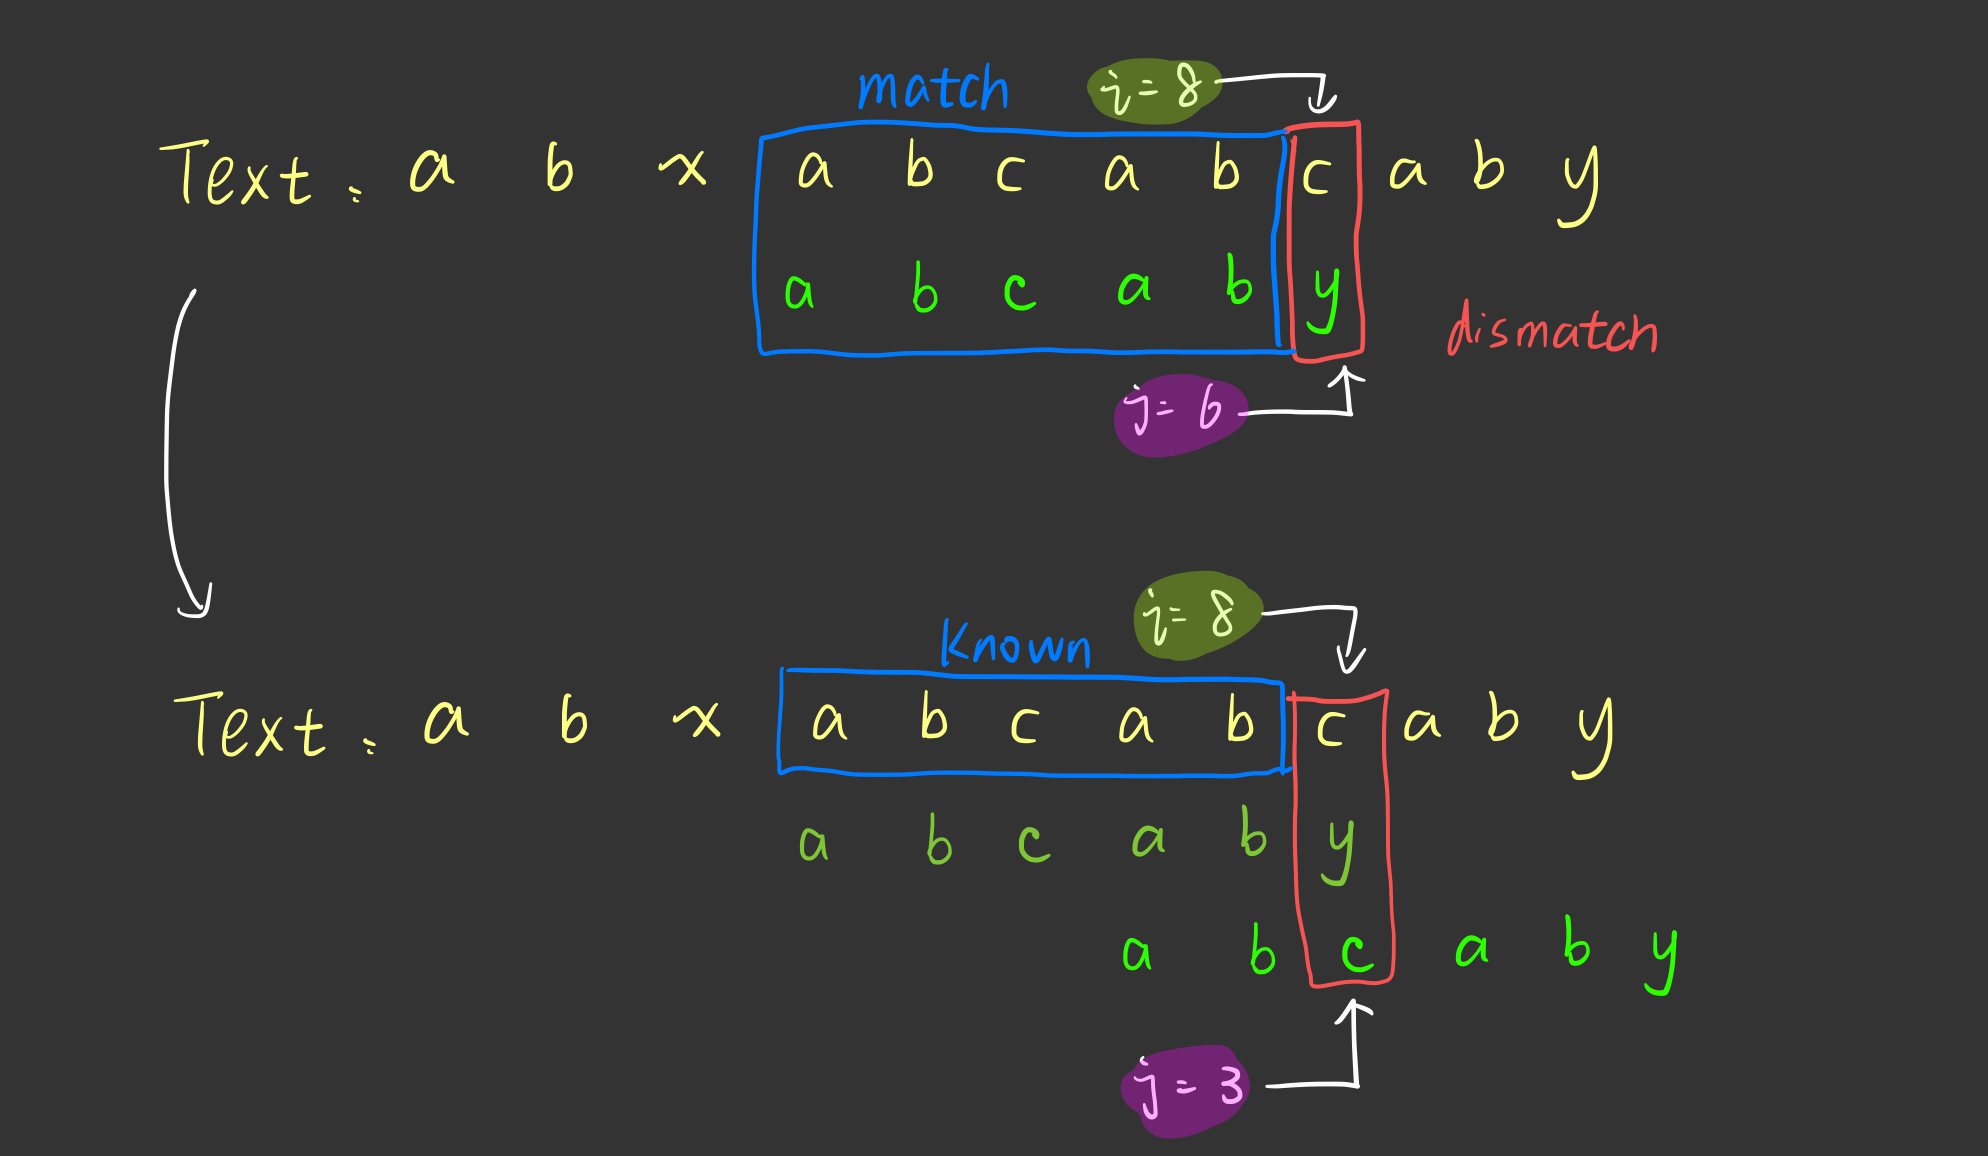 match i = 8
Text : a b x a b c a b c a b y
a b c a b y
dismatch
j = 6
Known i = 8
Text : a b x a b c a b c a b y
a b c a b y
a b c a b y
j = 3